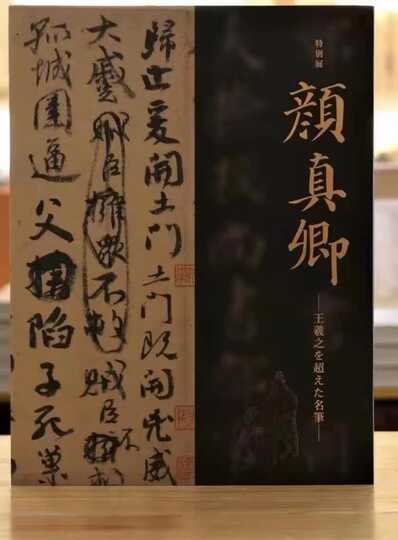 特別展
顔真卿
—王羲之を超えた名筆—
歸止爰開土門土門既開凶威
大蹙賊臣擁衆不救賊臣不
孤城圍逼父陷子死巢